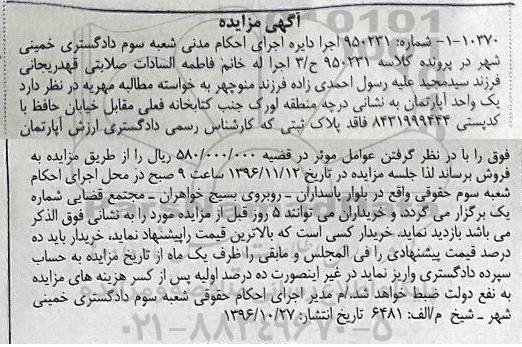 آگهی مزایده
۱-۱۰۳۷۰- شماره: ۹۵۰۲۳۱ اجرا دایره اجرای احکام مدنی شعبه سوم دادگستری خمینی
شهر در پرونده کلاسه ۹۵۰۲۳۱ ح/۳ اجرا له خانم فاطمه السادات صلابتی قهدریجانی
فرزند سیدمجید علیه رسول احمدی زاده فرزند منوچهر به خواسته مطالبه مهریه در نظر دارد
یک واحد آپارتمان به نشانی درچه منطقه لورک جنب کتابخانه فعلی مقابل خیابان حافظ با
کدپستی ۸۴۳۱۹۹۹۴۴۴ فاقد پلاک ثبتی که کارشناس رسمی دادگستری ارزش آپارتمان
فوق را با در نظر گرفتن عوامل موثر در قضیه ۵۸۰/۰۰۰/۰۰۰ ریال را از طریق مزایده به
فروش برساند لذا جلسه مزایده در تاریخ ۱۳۹۶/۱۱/۱۲ ساعت ۹ صبح در محل اجرای احکام
شعبه سوم حقوقی واقع در بلوار پاسداران ـ روبروی بسیج خواهران ـ مجتمع قضایی شماره
یک برگزار می گردد و خریداران می توانند ۵ روز قبل از مزایده مورد را به نشانی فوق الذکر
می باشد بازدید نماید. خریدار کسی است که بالاترین قیمت راپیشنهاد نماید، خریدار باید ده
درصد قیمت پیشنهادی را فی المجلس و مابقی را ظرف یک ماه از تاریخ مزایده به حساب
سپرده دادگستری واریز نماید در غیر اینصورت ده درصد اولیه پس از کسر هزینه های مزایده
به نفع دولت ضبط خواهد شد./م مدیر اجرای احکام حقوقی شعبه سوم دادگستری خمینی
شهر ـ شیخ م/الف: ۶۴۸۱ تاریخ انتشار: ۱۳۹۶/۱۰/۲۷
۰۲۱-۸۸۳۴۹۶۷۰-۵